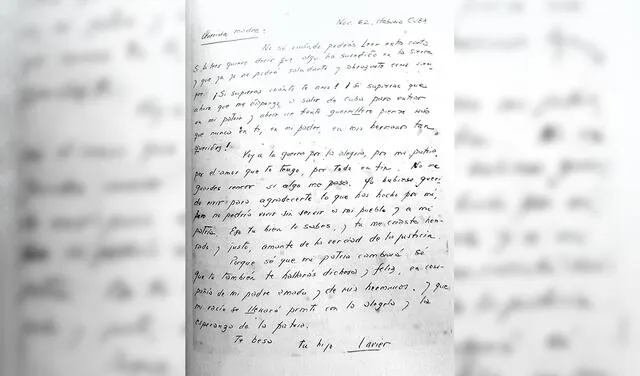 Nov. 62, Habana CUBA
Querida madre:
No sé cuándo podrás leer esta carta
Si bien quiere decir que algo ha sucedido en la Sierra
y que ya no podré saludarte y abrazarte como siem
pre. ¡Si supieras cuánto te amo! ¡Si supieras que
ahora que me dispongo a salir de Cuba para entrar
en mi patria y abrir un frente guerrillero pienso más
que nunca en ti, en mi padre, en mis hermanos tan
queridos!
Voy a la guerra por la alegría, por mi patria,
por el amor que te tengo, por todo en fin. No me
guardes rencor si algo me pasa. Yo hubiese queri
do vivir para agradecerte lo que has hecho por mí,
pero no podría vivir sin servir a mi pueblo y a mi
patria. Eso tú bien lo sabes, y tú me criaste hon
rado y justo, amante de la verdad de la justicia.
Porque sé que mi patria cambiará sé
que tú también te hallarás dichosa y feliz, en com
pañía de mi padre amado y de mis hermanos. y que
mi vacío se llenará pronto con la alegría y la
esperanza de la patria.
Te besa
tu hijo Javier